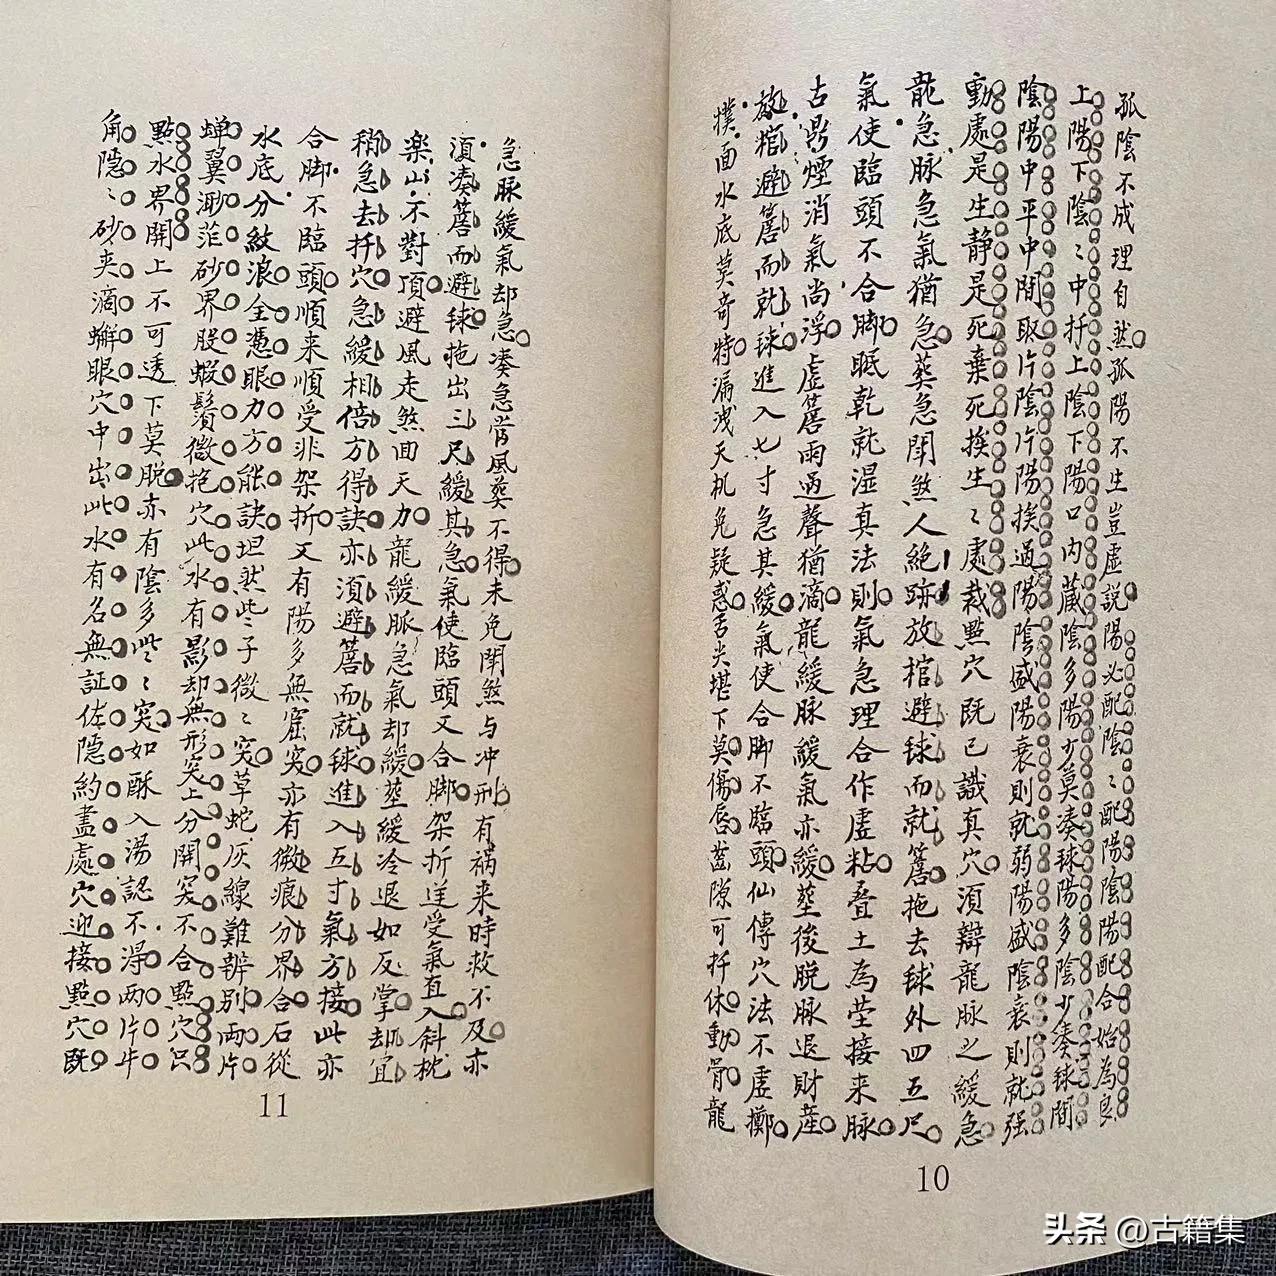 孤陰不成理自然孤陽不生豈虛説陽必配陰〻配陽陰陽配合始為良
上陽下陰〻中扦上陰下陽口内藏陰多陽少莫湊毬陽多陰少奏毬間
陰陽中平中間取片陰片陽挨過陽陰盛陽衰則就弱陽盛陰衰則就强
動處是生静是死棄死挨生〻處裁點穴既已識真穴須辯龍脉之緩急
龍急脉急氣猶急葬急鬥煞人絶跡放棺避毬而就簷拖去毬外四五尺
氣使臨頭不合脚眂乾就湿真法則氣急理合作虚粘叠土為茔接来脉
古鼎煙消氣尚浮虚簷雨過聲猶滴龍緩脉緩氣亦緩塟後脱脉退財産
放棺避簷而就毬進入七寸急其緩氣使合脚不臨頭仙傳穴法不虚擲
撲面水底莫奇特漏洩天机免疑惑舌尖堪下莫傷唇齒隙可扦休動骨龍
10
急脉緩氣却急湊急當風葬不得未免鬥煞与冲刑有祸来時救不及亦
湏湊簷而避毬拖出三尺緩其急氣使臨頭又合脚架折送受氣直入斜枕
楽山不對頂避風走煞面天力龍緩脈急氣却緩塟緩冷退如反掌却宜
稍急去扦穴急緩相倍方得訣亦湏避簷而就毬進入五寸氣方接此亦
合脚不臨頭順来順受非架折又有陽多無窟突亦有微痕分界合石從
水底分紋浪全憑眼力方能訣坦然些子微〻突草蛇灰線難辨别両片
蝉翼渺茫砂界股蝦鬚微抱穴此水有影却無形突上分開突不合點穴只
點水界開上不可透下莫脱亦有陰多些〻突如酥入湯認不淂两片牛
角隐〻砂夹滴蠏眼穴中出此水有名無証佐隐約盡處穴迎接點穴既
11
头条 @古籍集